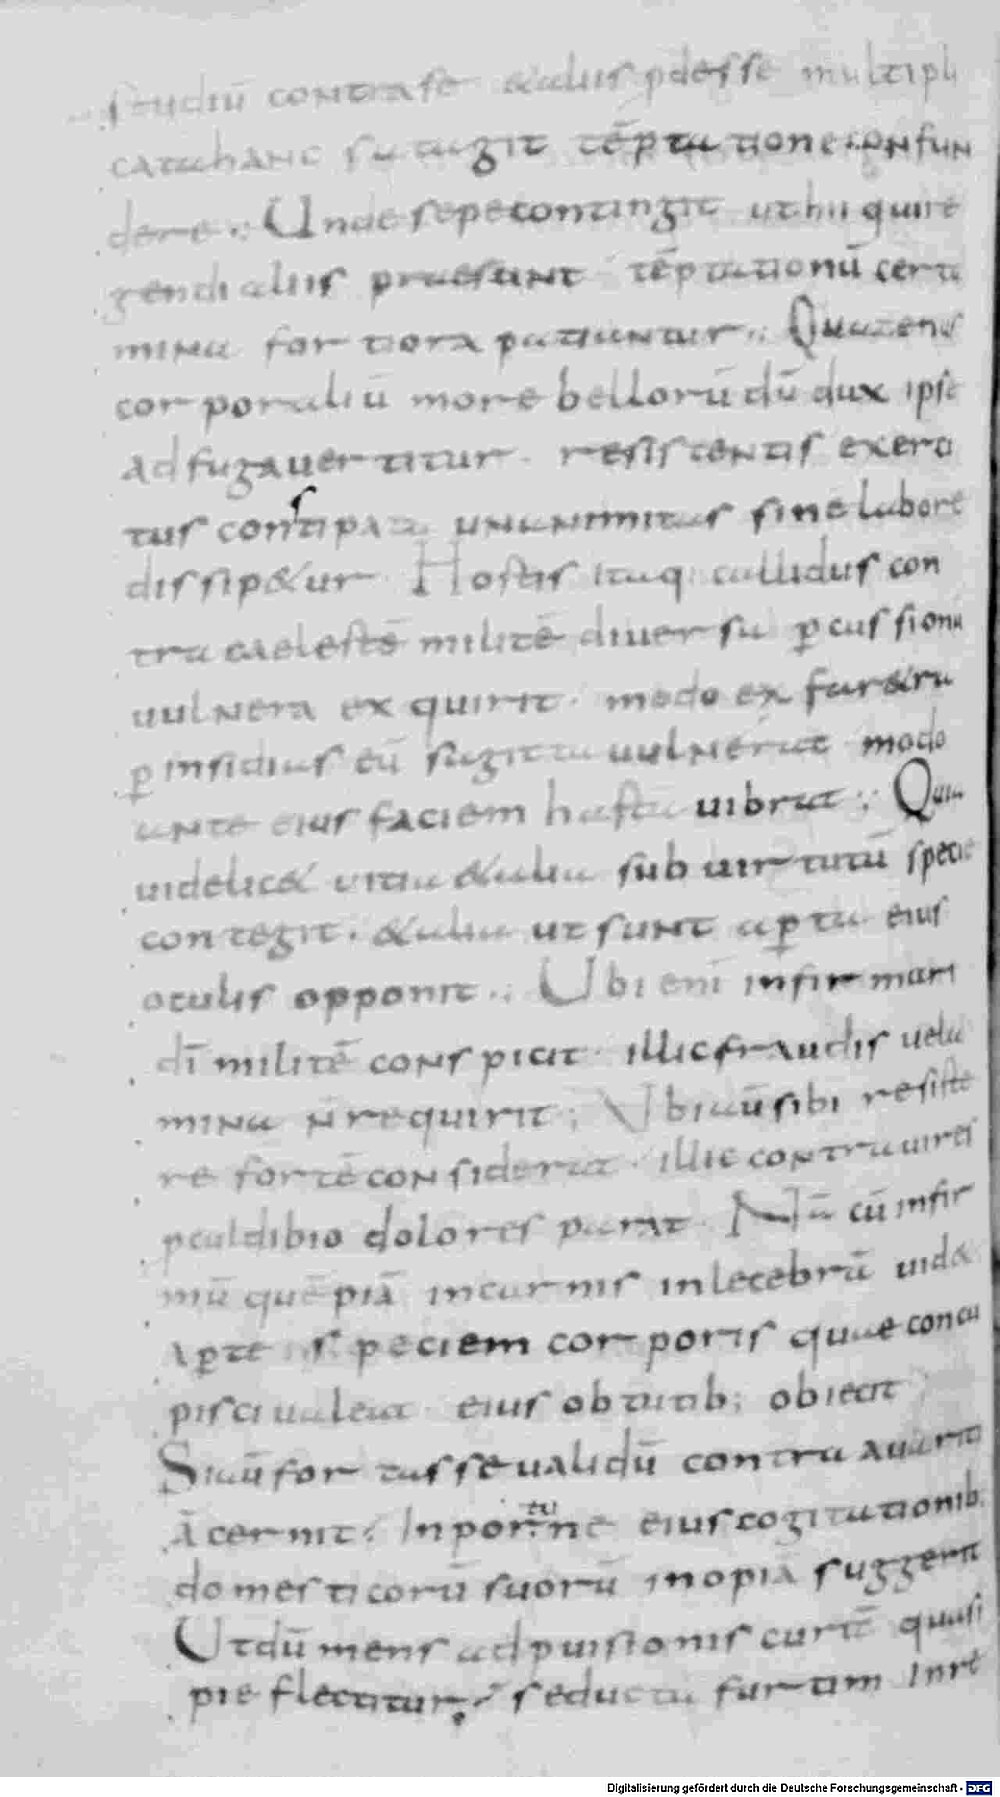 studiū contra se & aliis pdesse multipli
cata hanc satagit tēptatione confun
dere. Unde sepe contingit ut hii qui re
gendi aliis praesunt tēptationū certa
mina fortiora patiantur. Quatenus
corporaliū more bellorū dū dux ipse
ad fuga uertitur. resistentis exerci
tus constipata unanimitas sine labore
dissip&ur. Hostis itaq; callidus con
tra caelestē militē diuersa pcussionū
uulnera exquirit. modo ex far&ra
p insidias eū sagitta uulnerat modo
ante eius faciem hasta uibrat; Quia
uidelic& uitia & alia sub uirtutū specie
contegit. & alia ut sunt apta eius
oculis opponit. Ubi enī infirmari
dī militē conspicit. illic fraudis uela
mina n̄ requirit; Ubi aūt sibi resiste
re fortē considerat. illic contra uires
pcul dibio dolores parat. Nā cū infir
mū quēpiā in carnis inlecebrā uid&
apte speciem corporis quae concu
pisci ualeat eius obtutib; obiecit
Si aūt fortasse ualidū contra auariti
ā cernit. Inportune eius cogitationib;
domesticorū suorū inopiā suggerit
Ut dū mens ad puisionis curā quasi
pie flectitur. seducta furtim in re